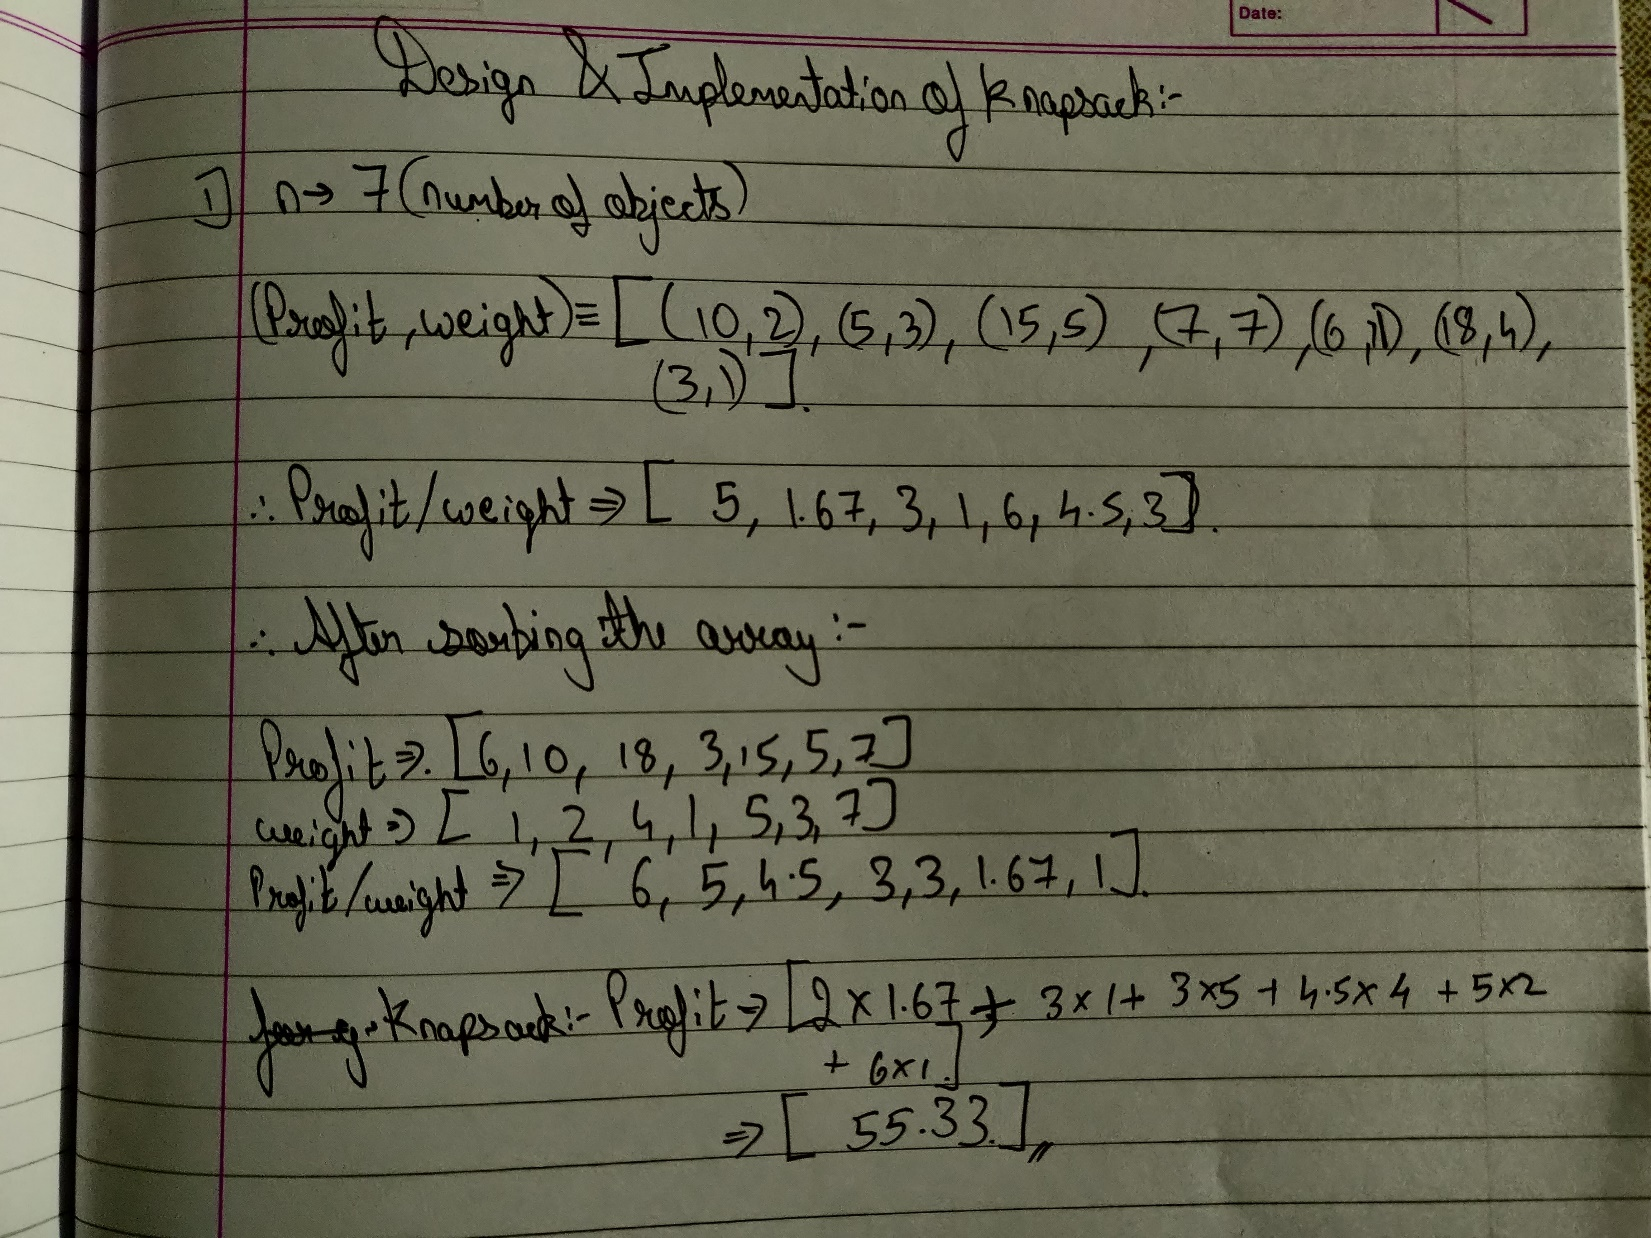 Date:
Design & Implementation of Knapsack:-
1] n→ 7 (number of objects)
(Profit, weight) ≡ [ (10,2), (5,3), (15,5) , (7,7) , (6,1), (18,4),
(3,1) ].
∴ Profit/weight ⇒ [ 5, 1.67, 3, 1, 6, 4.5, 3 ].
∴ After sorting the array :-
Profit ⇒. [6, 10, 18, 3, 15, 5, 7]
weight ⇒ [ 1, 2, 4, 1, 5, 3, 7 ]
Profit/weight ⇒ [ 6, 5, 4.5, 3, 3, 1.67, 1 ].
Knapsack:- Profit → [2 x 1.67 + 3 x 1 + 3 x 5 + 4.5 x 4 + 5 x 2
+ 6 x 1.]
⇒ [ 55.33. ]